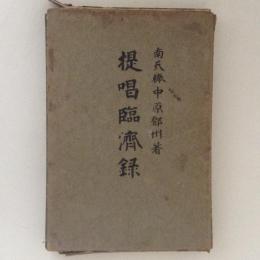 南天棒中原鄧州著
提唱臨濟錄